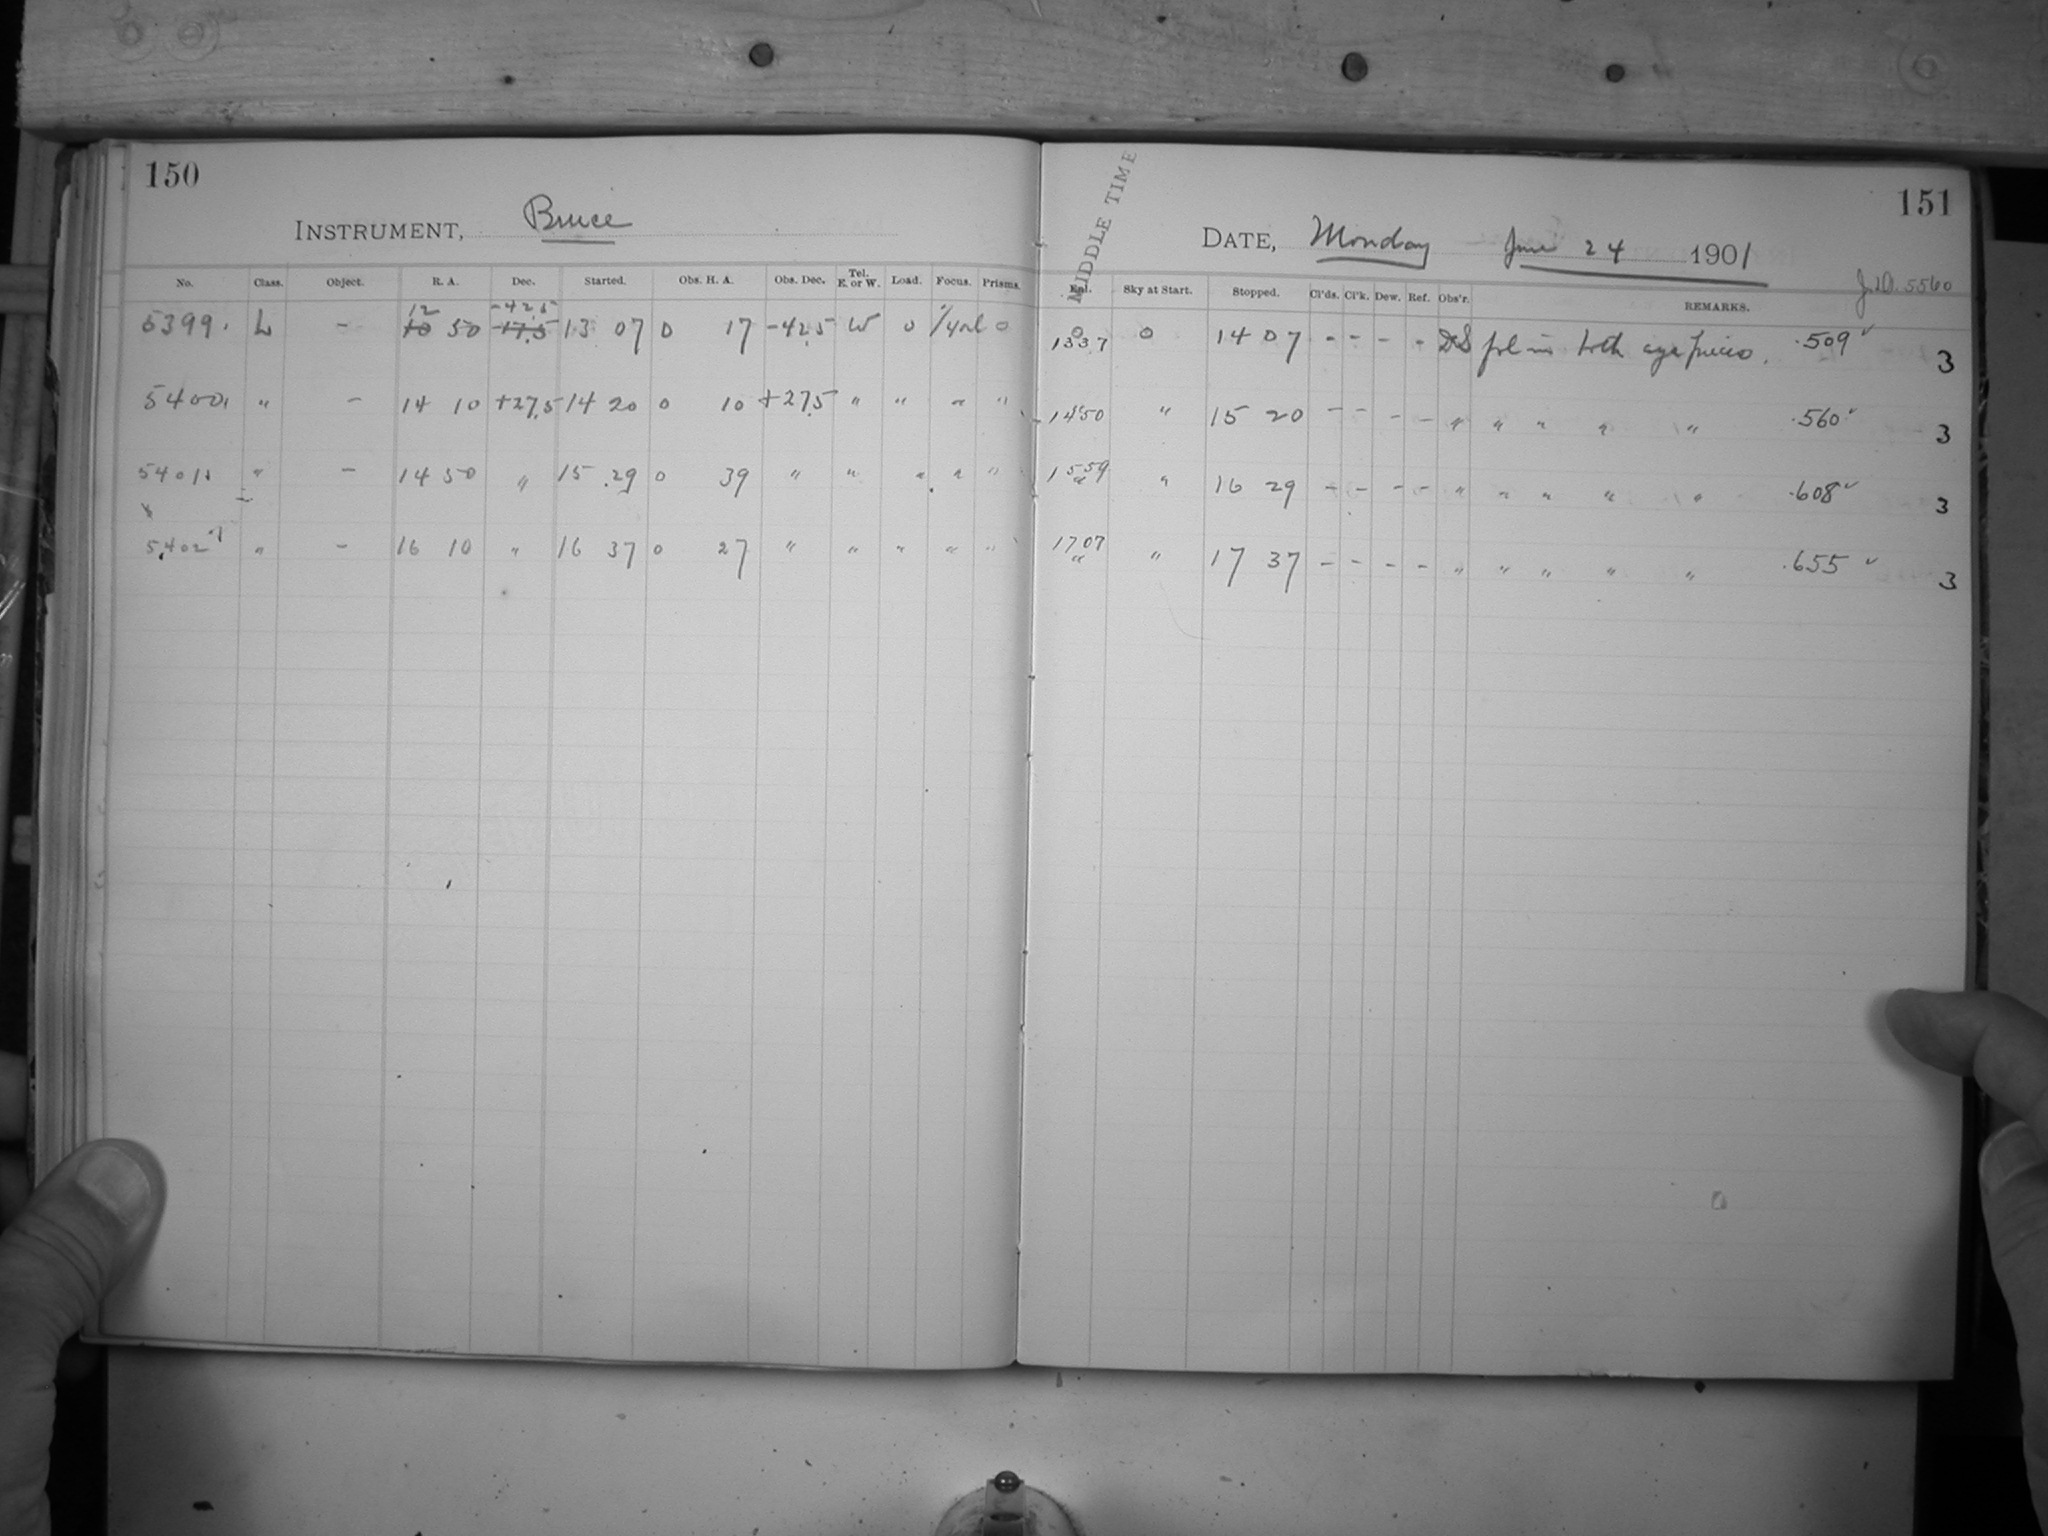 150
INSTRUMENT, Bruce
No. Class. Object. R. A. Dec. Started. Obs. H. A. Obs. Dec. Tel. E. or W. Load. Focus. Prisms.
12 -42.5
5399. L - 10 50 -17.5 13 07 0 17 -42.5 W 0 0
5400. " - 14 10 +27.5 14 20 0 10 +27.5 " " " "
5401. " - 14 50 " 15 29 0 39 " " " " "
5402 " - 16 10 " 16 37 0 27 " " " " "
MIDDLE TIME
151
DATE, Monday June 24 1901
J.D. 5560
Epl. Sky at Start. Stopped. Cl'ds. Cl'k. Dew. Ref. Obs'r. REMARKS.
0 1337 0 14 07 - - - - DS in both .509 ✓ 3
1450 " 15 20 - - - - " " " " " .560 ✓ 3
1559 " " 16 29 - - - - " " " " " .608 ✓ 3
1707 " " 17 37 - - - - " " " " " .655 ✓ 3